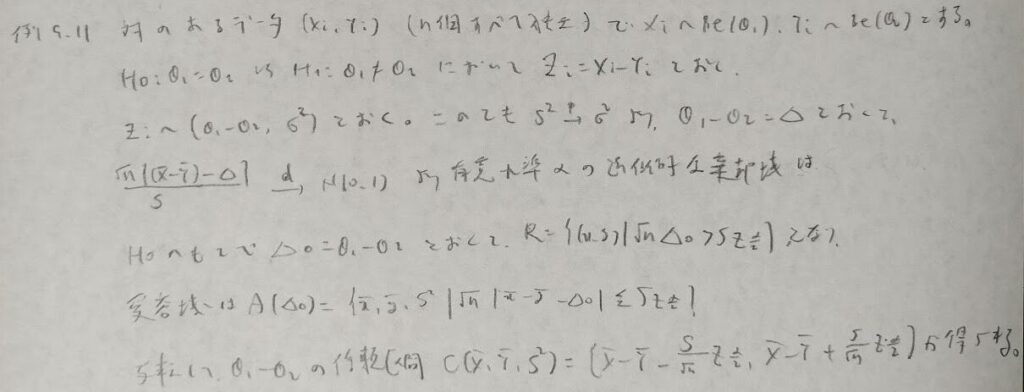 例 5.11 対のあるデータ (Xi, Yi) (n個すべて独立) で Xi ~ Be(θ1), Yi ~ Be(θ2) とする。
H0: θ1=θ2 vs H1: θ1≠θ2 において Zi=Xi-Yi とおく.
Zi ~ (θ1-θ2, σ²) とおく。このとき S² →p σ² より, θ1-θ2=Δ とおくと,
√n{(X̄-Ȳ)-Δ}/S →d N(0,1) より有意水準 α の近似的な棄却域は
H0のもとで Δ0=θ1-θ2 とおくと. R={(x,y)|√n Δ0 > S z α/2} となり.
受容域は A(Δ0)={x̄, ȳ, S² | √n |x̄-ȳ-Δ0| ≤ S z α/2}
θ1-θ2 の信頼区間 C(X̄, Ȳ, S²)=[X̄-Ȳ - S/√n z α/2, X̄-Ȳ + S/√n z α/2] が得られる。